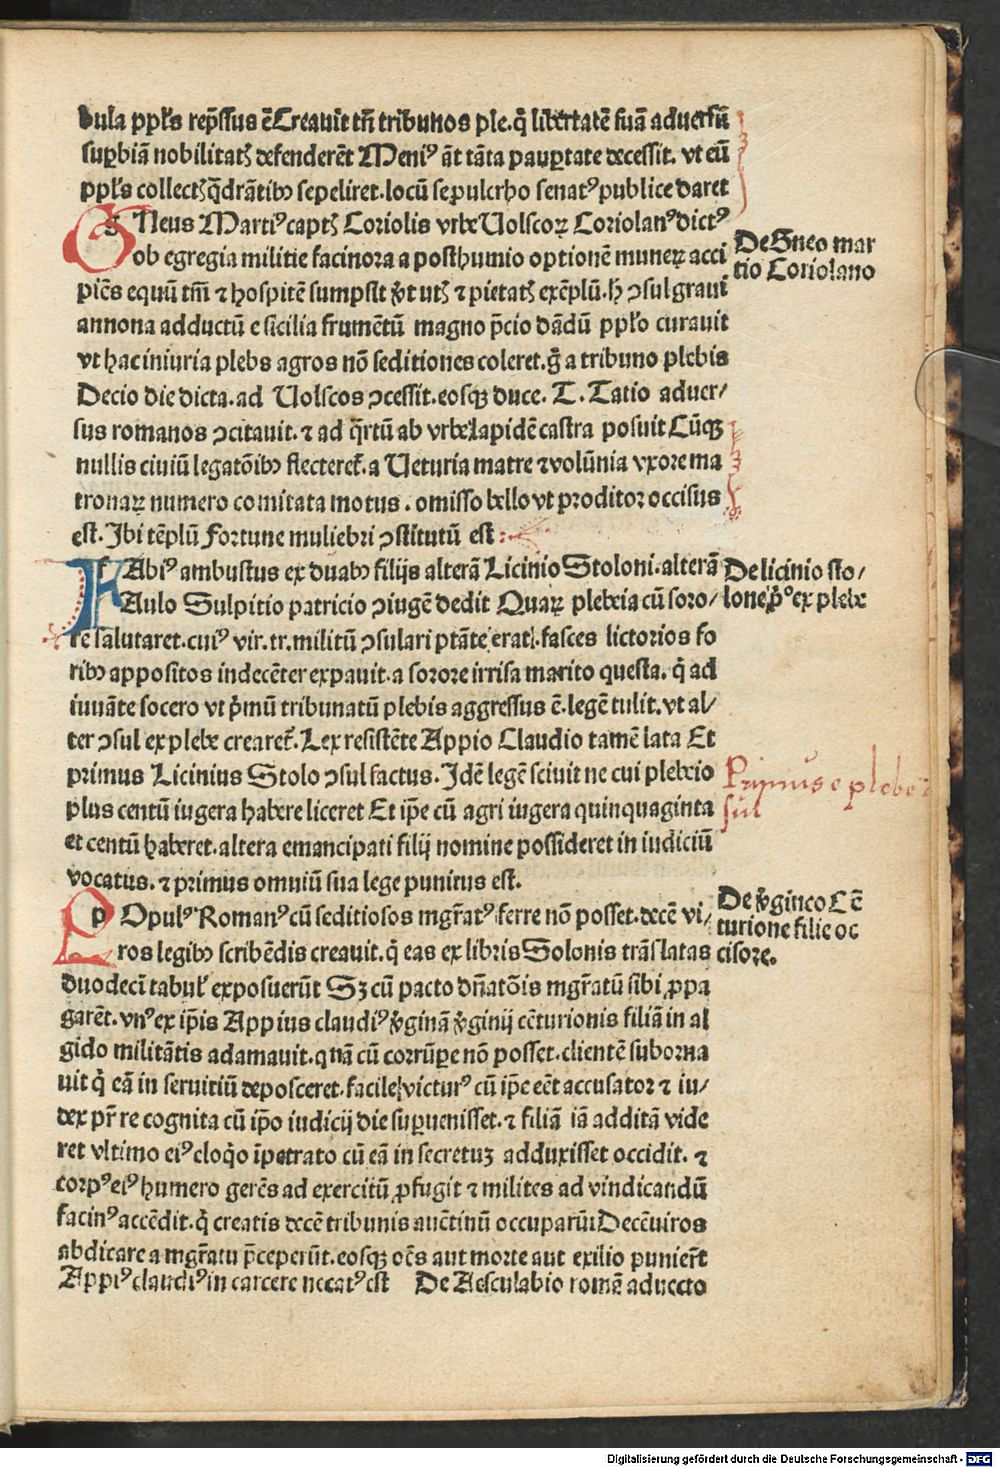 bula ppl̄s rep̄ssus ē Creauit tn̄ tribunos ple. q̄ libertatē suā aduersū
suꝑbiā nobilitatꝭ defenderēt Meniꝰ āt tāta pauꝑtate decessit. vt eū
ppl̄s collectꝭ q̄drātibꝫ sepeliret. locū sepulcrho senatꝰ publice daret
g Neus Martiꝰ captꝭ Coriolis vrbe Uolscoꝝ Coriolanꝰ dictꝰ
ob egregia militie facinora a posthumio optionē muneꝝ acci
De Gneo mar
tio Coriolano
piēs equū tm̄ ⁊ hospitē sumpsit
annona adductū e sicilia frumētū magno p̄cio dādū ppl̄o curauit
vt hac iniuria plebs agros nō seditiones coleret. g̊ a tribuno plebis
Decio die dicta. ad Uolscos ꝯcessit. eosqꝫ duce. T. Tatio aduer/
sus romanos ꝯcitauit. ⁊ ad q̄rtū ab vrbe lapidē castra posuit Cūqꝫ
nullis ciuiū legatōibꝫ flecteret᷑. a Ueturia matre ⁊ volūnia vxore ma
tronaꝝ numero comitata motus. omisso bello vt proditor occisus
est. Ibi tēplū Fortune muliebri ꝯstitutū est:
f Abiꝰ ambustus ex duabꝫ filijs alterā Licinio Stoloni. alterā
Aulo Sulpitio patricio ꝯiugē dedit Quaꝝ plebeia cū soro/
De licinio sto/
lone p̄ꝰ ex plebe
re salutaret. cuiꝰ vir. tr. militū ꝯsulari ptāte erat. fasces lictorios fo
ribꝫ appositos indecēter expauit. a sorore irrisa marito questa. q̄ ad
iuuāte socero vt p̄mū tribunatū plebis aggressus ē. legē tulit. vt al/
ter ꝯsul ex plebe crearet᷑. Lex resistēte Appio Claudio tamē lata Et
primus Licinius Stolo ꝯsul factus. Idē legē sciuit ne cui plebeio
Primus e plebe ꝯ
sul
plus centū iugera habere liceret Et ip̄e cū agri iugera quinquaginta
et centū haberet. altera emancipati filij nomine possideret in iudiciū
vocatus. ⁊ primus omniū sua lege punitus est.
p Opulꝰ Romanꝰ cū seditiosos mgr̄atꝰ ferre nō posset. decē vi/
ros legibꝫ scribēdis creauit. q̄ eas ex libris Solonis trāslatas
De v̄gineo Cē
turione filie oc
cisore.
duodecī tabul᷑ exposuerūt Sꝫ cū pacto dn̄atōis mgr̄atū sibi ꝓpa
garēt. vnꝰ ex ip̄is Appius claudiꝰ v̄ginā v̄ginij cēturionis filiā in al
gido militātis adamauit. quā cū corrūꝑe nō posset. clientē suborna
uit q̄ eā in seruitiū deposceret. facile victurꝰ cū ip̄e eēt accusator ⁊ iu/
dex pr̄ re cognita cū ip̄o iudicij die suꝑuenisset. ⁊ filiā iā additā vide
ret vltimo eiꝰ cloq̊o īpetrato cū eā in secretuꝫ adduxisset occidit. ⁊
corpꝰ eiꝰ humero gerēs ad exercitū ꝓfugit ⁊ milites ad vindicandū
facinꝰ accēdit. q̄ creatis decē tribunis auētinū occuparūt Decēuiros
abdicare a mgr̄atu p̄ceperūt. eosqꝫ oēs aut morte aut exilio punier̄t
Appiꝰ claudiꝰ in carcere necatꝰ est De Aesculabio romē aduecto
Digitalisierung gefördert durch die Deutsche Forschungsgemeinschaft - DFG